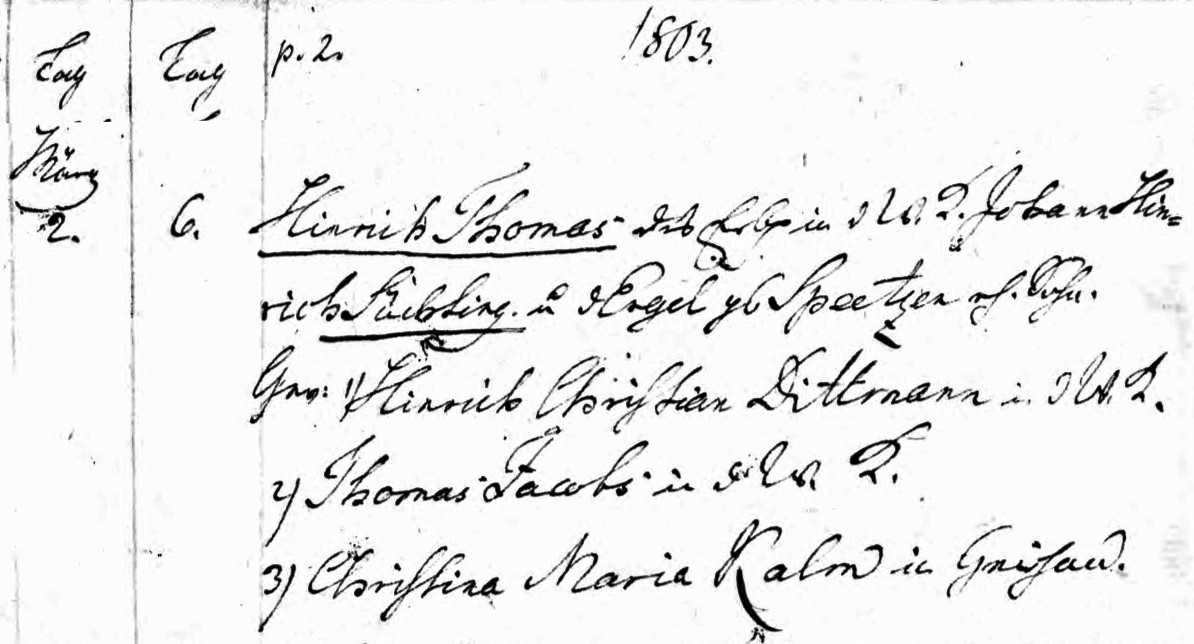 Tag Tag p. 2. 1803.
März
2. 6. Hinrich Thomas des in d W. D. Johann Hin=
rich Lübsing. u d Engel gb Speetzen ehl. Sohn.
Gev: 1) Hinrich Christian Dittmann in d W. D.
2) Thomas Jacobs in d W. D.
3) Christina Maria Kalm in Gnissau.